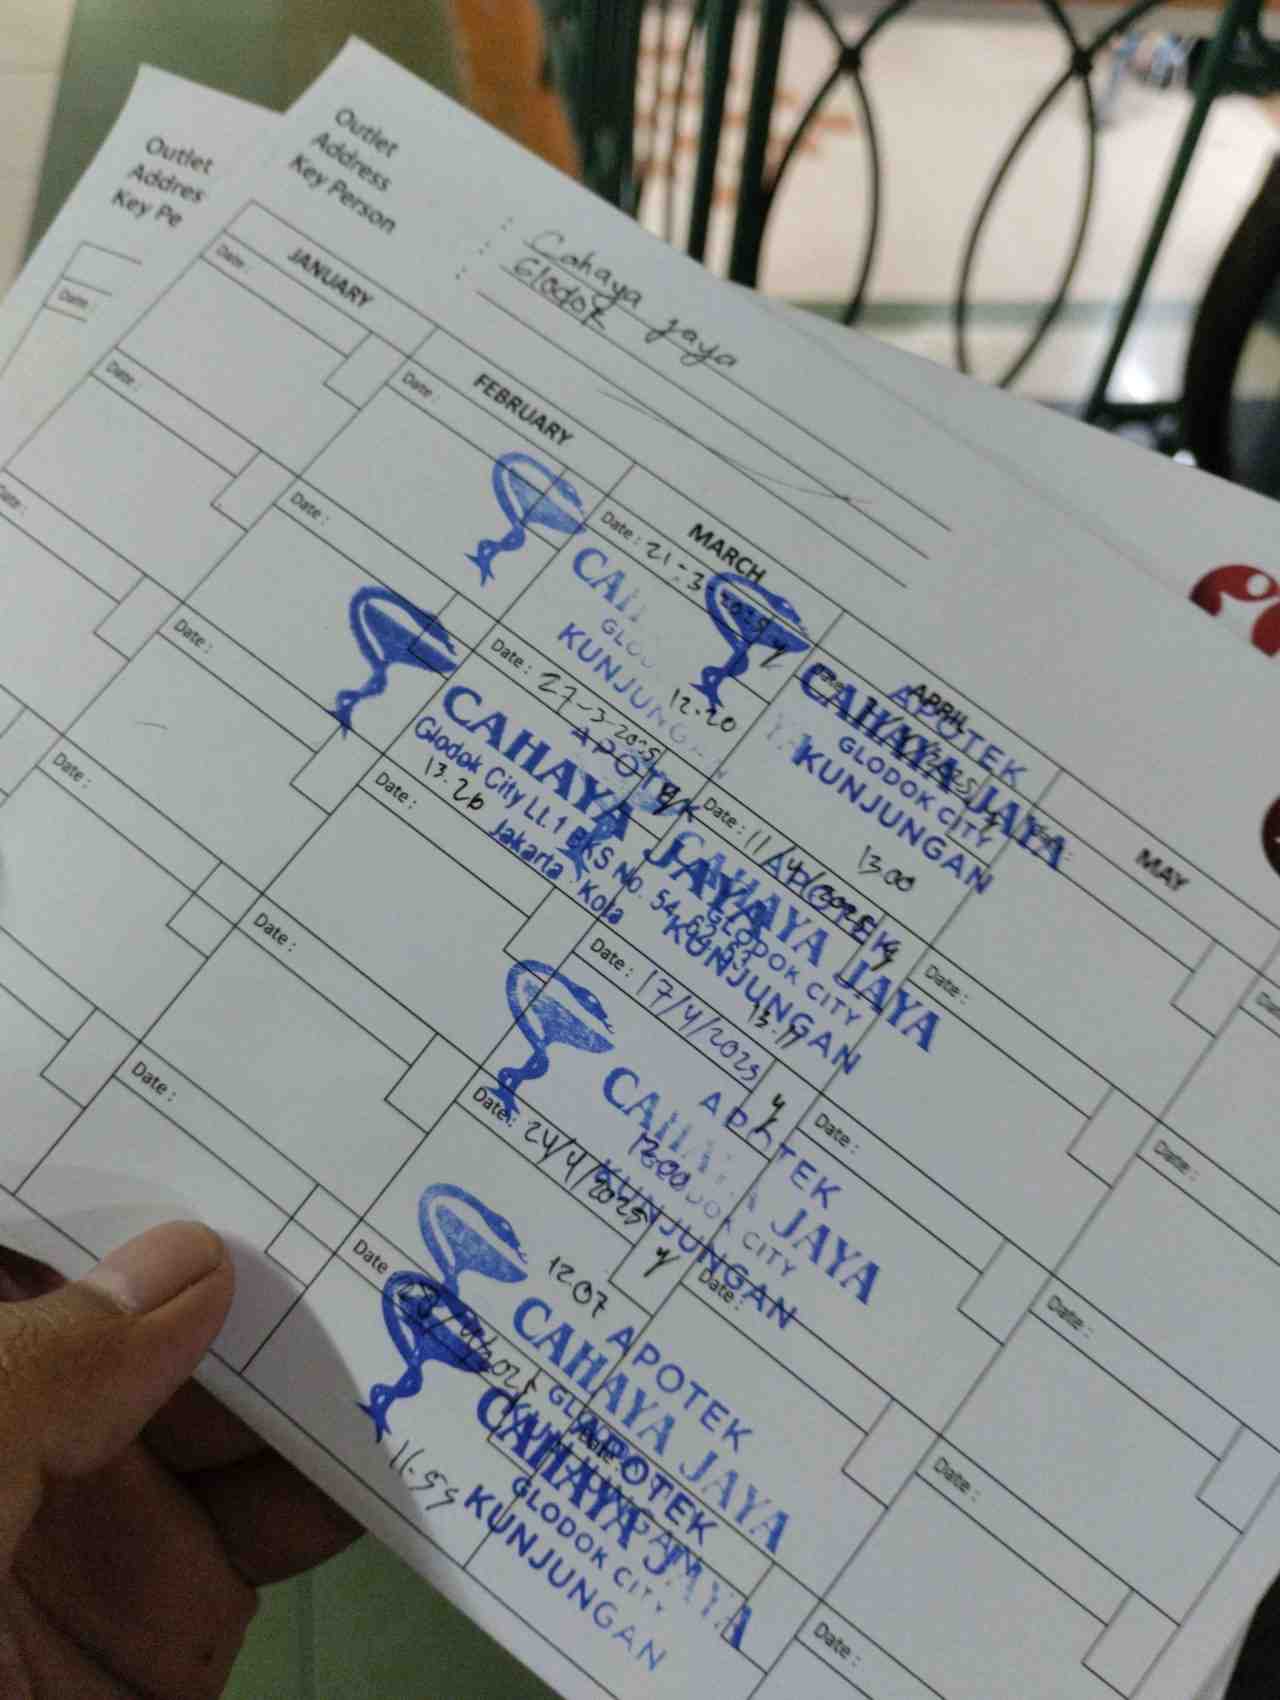 Outlet
Address
Key Person
: Cahaya Jaya
: Glodok
:
Outlet
Addres
Key Pe
JANUARY
FEBRUARY
MARCH
APRIL
MAY
Date :
Date :
Date :
Date :
Date :
Date :
Date :
Date :
Date :
Date :
Date :
Date : 21-3-2025
12.20
CAHAYA
GLODOK
KUNJUNGAN
Date : 27-3-2025
13.26
APOTEK
CAHAYA JAYA
Glodok City Lt.1 BKS No. 54,
Jakarta - Kota
APOTEK
CAHAYA JAYA
GLODOK CITY
KUNJUNGAN
13.00
Date : 11/4/2025 y
APOTEK
CAHAYA JAYA
GLODOK CITY
KUNJUNGAN
Date : 17/4/2025 y
APOTEK
CAHAYA JAYA
GLODOK CITY
KUNJUNGAN
Date : 24/4/2025 y
12.07
APOTEK
CAHAYA JAYA
Date
11.59
APOTEK
CAHAYA JAYA
GLODOK CITY
KUNJUNGAN
Date :
Date :
Date :
Date :
Date :
Date :
Date :